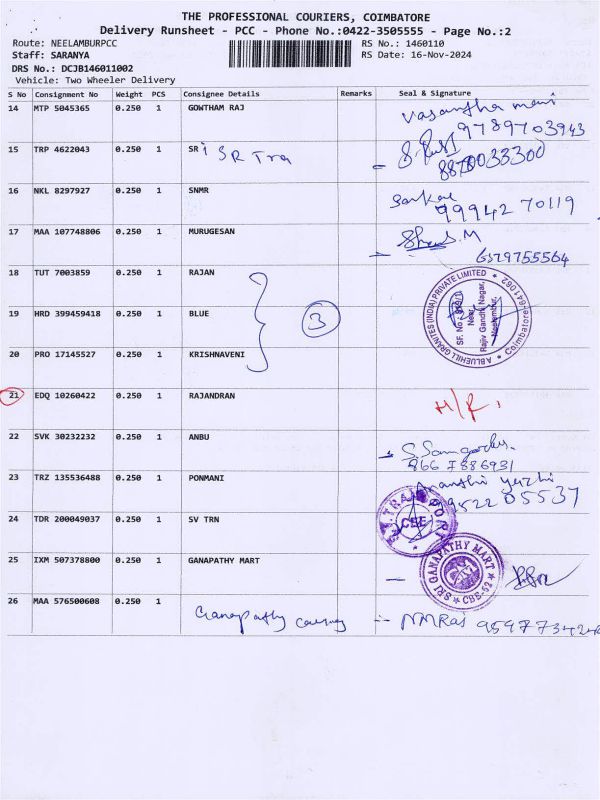 THE PROFESSIONAL COURIERS, COIMBATORE
Delivery Runsheet - PCC - Phone No.:0422-3505555 - Page No.:2
Route: NEELAMBURPCC RS No.: 1460110
Staff: SARANYA RS Date: 16-Nov-2024
DRS No.: DCJB146011002
Vehicle: Two Wheeler Delivery
S No Consignment No Weight PCS Consignee Details Remarks Seal & Signature
14 MTP 5045365 0.250 1 GOWTHAM RAJ Vasantha mani
9789703943
15 TRP 4622043 0.250 1 SRi SR Tra
8870033300
16 NKL 8297927 0.250 1 SNMR
99942 70119
17 MAA 107748806 0.250 1 MURUGESAN
6379755564
18 TUT 7003859 0.250 1 RAJAN
19 HRD 399459418 0.250 1 BLUE 3
20 PRO 17145527 0.250 1 KRISHNAVENI
ABLUEHILL GRANITES (INDIA) PRIVATE LIMITED * Coimbatore-641062 *
Near
Rajiv Gandhi Nagar,
Neelambur,
21 EDQ 10260422 0.250 1 RAJANDRAN
22 SVK 30232232 0.250 1 ANBU
866 7886931
23 TRZ 135536488 0.250 1 PONMANI
95222 05537
24 TDR 200049037 0.250 1 SV TRN
CBE
25 IXM 507378800 0.250 1 GANAPATHY MART
SRI GANAPATHY MART * CBE-62 *
26 MAA 576500608 0.250 1 Ganapathy NMRaj